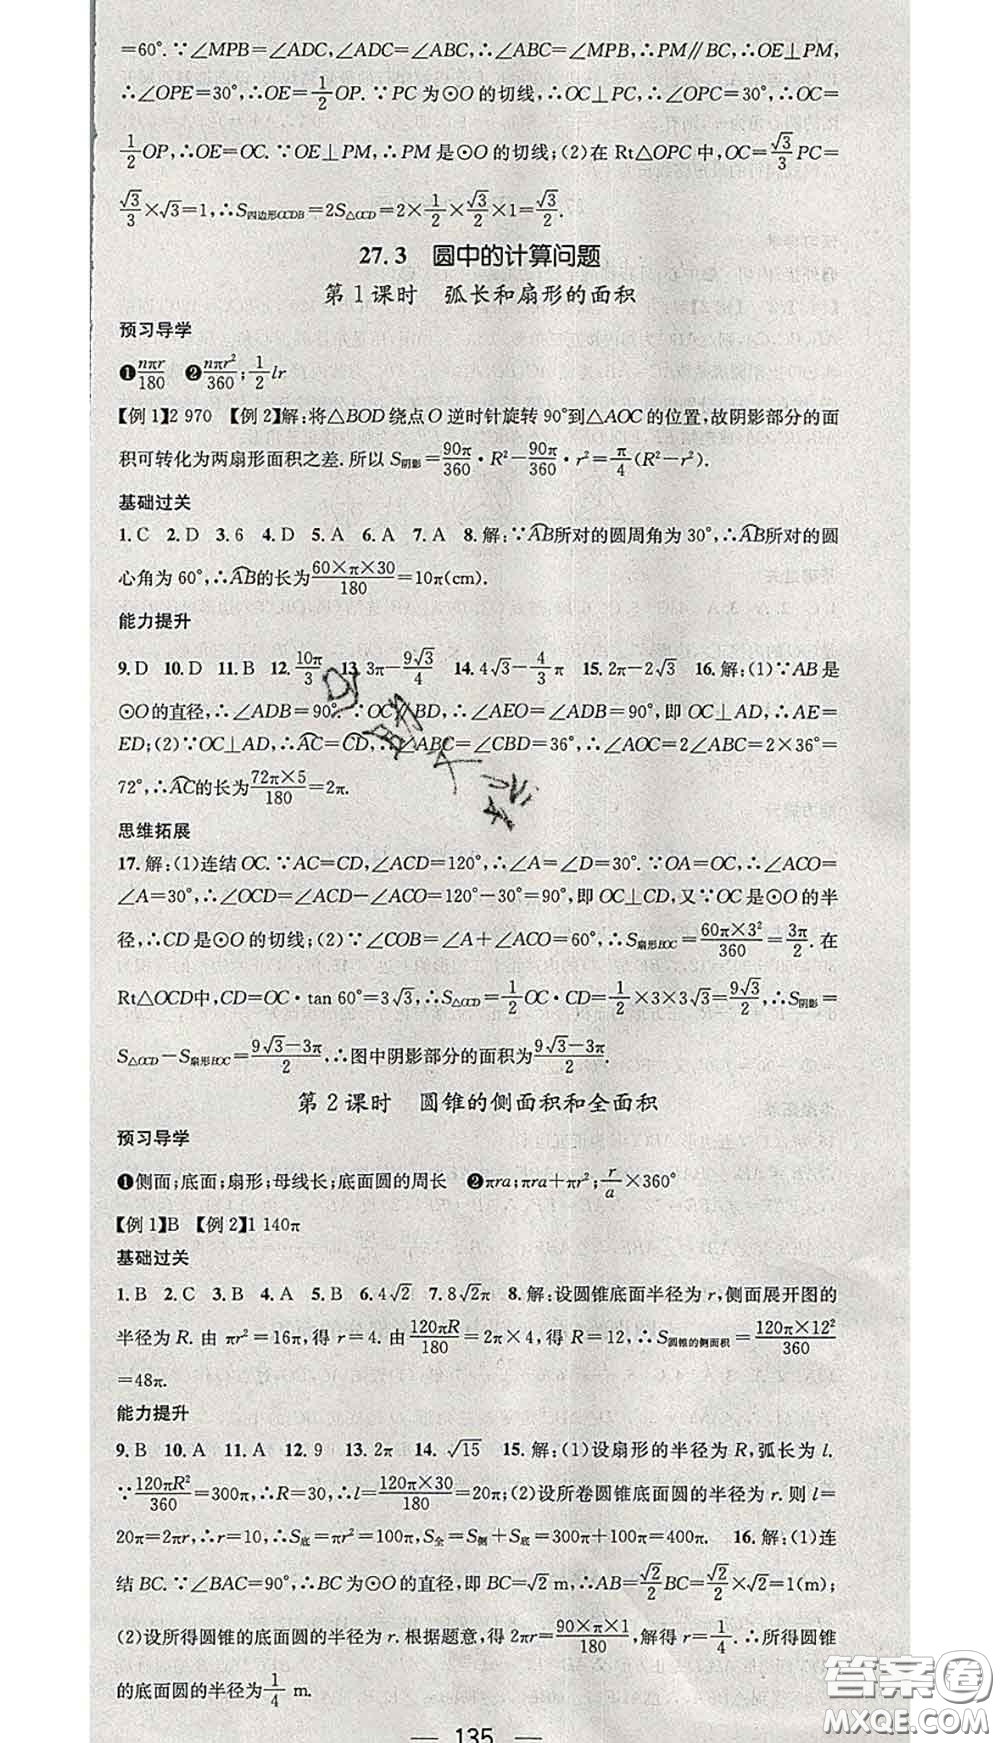 =60°.∵∠MPB=∠ADC,∠ADC=∠ABC,∴∠ABC=∠MPB,∴PM∥BC,∴OE⊥PM,
∴∠OPE=30°,∴OE=1/2OP.∵PC为⊙O的切线,∴OC⊥PC,∴∠OPC=30°,∴OC=
1/2OP,∴OE=OC.∵OE⊥PM,∴PM是⊙O的切线;(2)在Rt△OPC中,OC=√3/3PC=
√3/3×√3=1,∴S四边形OCDB=2S△OCD=2×1/2×√3/2×1=√3/2.
27.3 圆中的计算问题
第1课时 弧长和扇形的面积
预习导学
❶nπr/180 ❷nπr²/360;1/2lr
【例1】2 970 【例2】解:将△BOD绕点O逆时针旋转90°到△AOC的位置,故阴影部分的面
积可转化为两扇形面积之差.所以S阴影=90π/360·R²-90π/360·r²=π/4(R²-r²).
基础过关
1.C 2.D 3.6 4.D 5.A 6.A 7.A 8.解:∵AB⌒所对的圆周角为30°,∴AB⌒所对的圆
心角为60°,∴AB⌒的长为60×π×30/180=10π(cm).
能力提升
9.D 10.D 11.B 12.10π/3 13.3π-9√3/4 14.4√3-4/3π 15.2π-2√3 16.解:(1)∵AB是
⊙O的直径,∴∠ADB=90°.∵OC∥BD,∴∠AEO=∠ADB=90°,即OC⊥AD,∴AE=
ED;(2)∵OC⊥AD,∴AC⌒=CD⌒,∴∠ABC=∠CBD=36°,∴∠AOC=2∠ABC=2×36°=
72°,∴AC⌒的长为72π×5/180=2π.
思维拓展
17.解:(1)连结OC.∵AC=CD,∠ACD=120°,∴∠A=∠D=30°.∵OA=OC,∴∠ACO=
∠A=30°,∴∠OCD=∠ACD-∠ACO=120°-30°=90°,即OC⊥CD,又∵OC是⊙O的半
径,∴CD是⊙O的切线;(2)∵∠COB=∠A+∠ACO=60°,∴S扇形BOC=60π×3²/360=3π/2.在
Rt△OCD中,CD=OC·tan 60°=3√3,∴S△OCD=1/2OC·CD=1/2×3×3√3=9√3/2,∴S阴影=
S△OCD-S扇形BOC=9√3-3π/2,∴图中阴影部分的面积为9√3-3π/2.
第2课时 圆锥的侧面积和全面积
预习导学
❶侧面;底面;扇形;母线长;底面圆的周长 ❷πra;πra+πr²;r/a×360°
【例1】B 【例2】1 140π
基础过关
1.B 2.C 3.B 4.A 5.B 6.4√2 7.8√2π 8.解:设圆锥底面半径为r,侧面展开图的
半径为R.由πr²=16π,得r=4.由120πR/180=2π×4,得R=12,∴S圆锥的侧面积=120π×12²/360
=48π.
能力提升
9.B 10.A 11.A 12.9 13.2π 14.√15 15.解:(1)设扇形的半径为R,弧长为l.
∵120πR²/360=300π,∴R=30,∴l=120π×30/180=20π;(2)设所卷圆锥底面圆的半径为r.则l=
20π=2πr,∴r=10,∴S底=πr²=100π,S全=S侧+S底=300π+100π=400π. 16.解:(1)连
结BC.∵∠BAC=90°,∴BC为⊙O的直径,即BC=√2 m,∴AB=√2/2BC=√2/2×√2=1(m);
(2)设所得圆锥的底面圆的半径为r.根据题意,得2πr=90×π×1/180,解得r=1/4.∴所得圆锥
的底面圆的半径为1/4 m.
— 135 —
答案卷
MXQE.COM